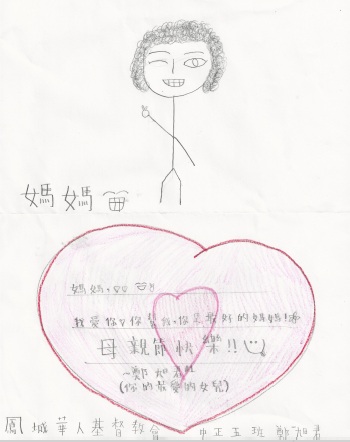 媽媽
媽媽，
我愛你，你是最好的媽媽！
母親節快樂!!
~鄭如君
(你的最愛的女兒)
鳳城華人基督教會 中正五班 鄭如君